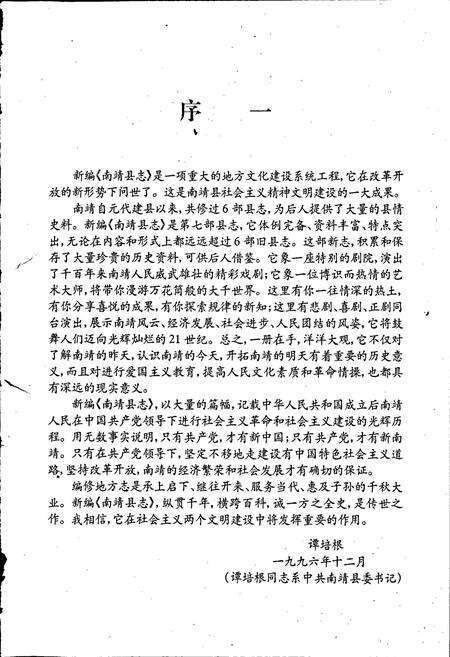 序 一
新编《南靖县志》是一项重大的地方文化建设系统工程，它在改革开
放的新形势下问世了。这是南靖县社会主义精神文明建设的一大成果。
南靖自元代建县以来，共修过6部县志，为后人提供了大量的县情
史料。新编《南靖县志》是第七部县志，它体例完备、资料丰富、特点突
出，无论在内容和形式上都远远超过6部旧县志。这部新志，积累和保
存了大量珍贵的历史资料，可供后人借鉴。它象一座特别的剧院，演出
了千百年来南靖人民威武雄壮的精彩戏剧；它象一位博识而热情的艺
术大师，将带你漫游万花筒般的大千世界。这里有你一往情深的热土，
有你分享喜悦的成果，有你探索规律的新知；这里有悲剧、喜剧、正剧同
台演出，展示南靖风云、经济发展、社会进步、人民团结的风姿，它将鼓
舞人们迈向光辉灿烂的21世纪。总之，一册在手，洋洋大观，它不仅对
了解南靖的昨天，认识南靖的今天，开拓南靖的明天有着重要的历史意
义，而且对进行爱国主义教育，提高人民文化素质和革命情操，也都具
有深远的现实意义。
新编《南靖县志》，以大量的篇幅，记载中华人民共和国成立后南靖
人民在中国共产党领导下进行社会主义革命和社会主义建设的光辉历
程。用无数事实说明，只有共产党，才有新中国；只有共产党，才有新南
靖。只有在共产党领导下，坚定不移地走建设有中国特色社会主义道
路，坚持改革开放，南靖的经济繁荣和社会发展才有确切的保证。
编修地方志是承上启下、继往开来、服务当代、惠及子孙的千秋大
业。新编《南靖县志》，纵贯千年，横跨百科，诚一方之全史，是传世之
作。我相信，它在社会主义两个文明建设中将发挥重要的作用。
谭培根
一九九六年十二月
（谭培根同志系中共南靖县委书记）